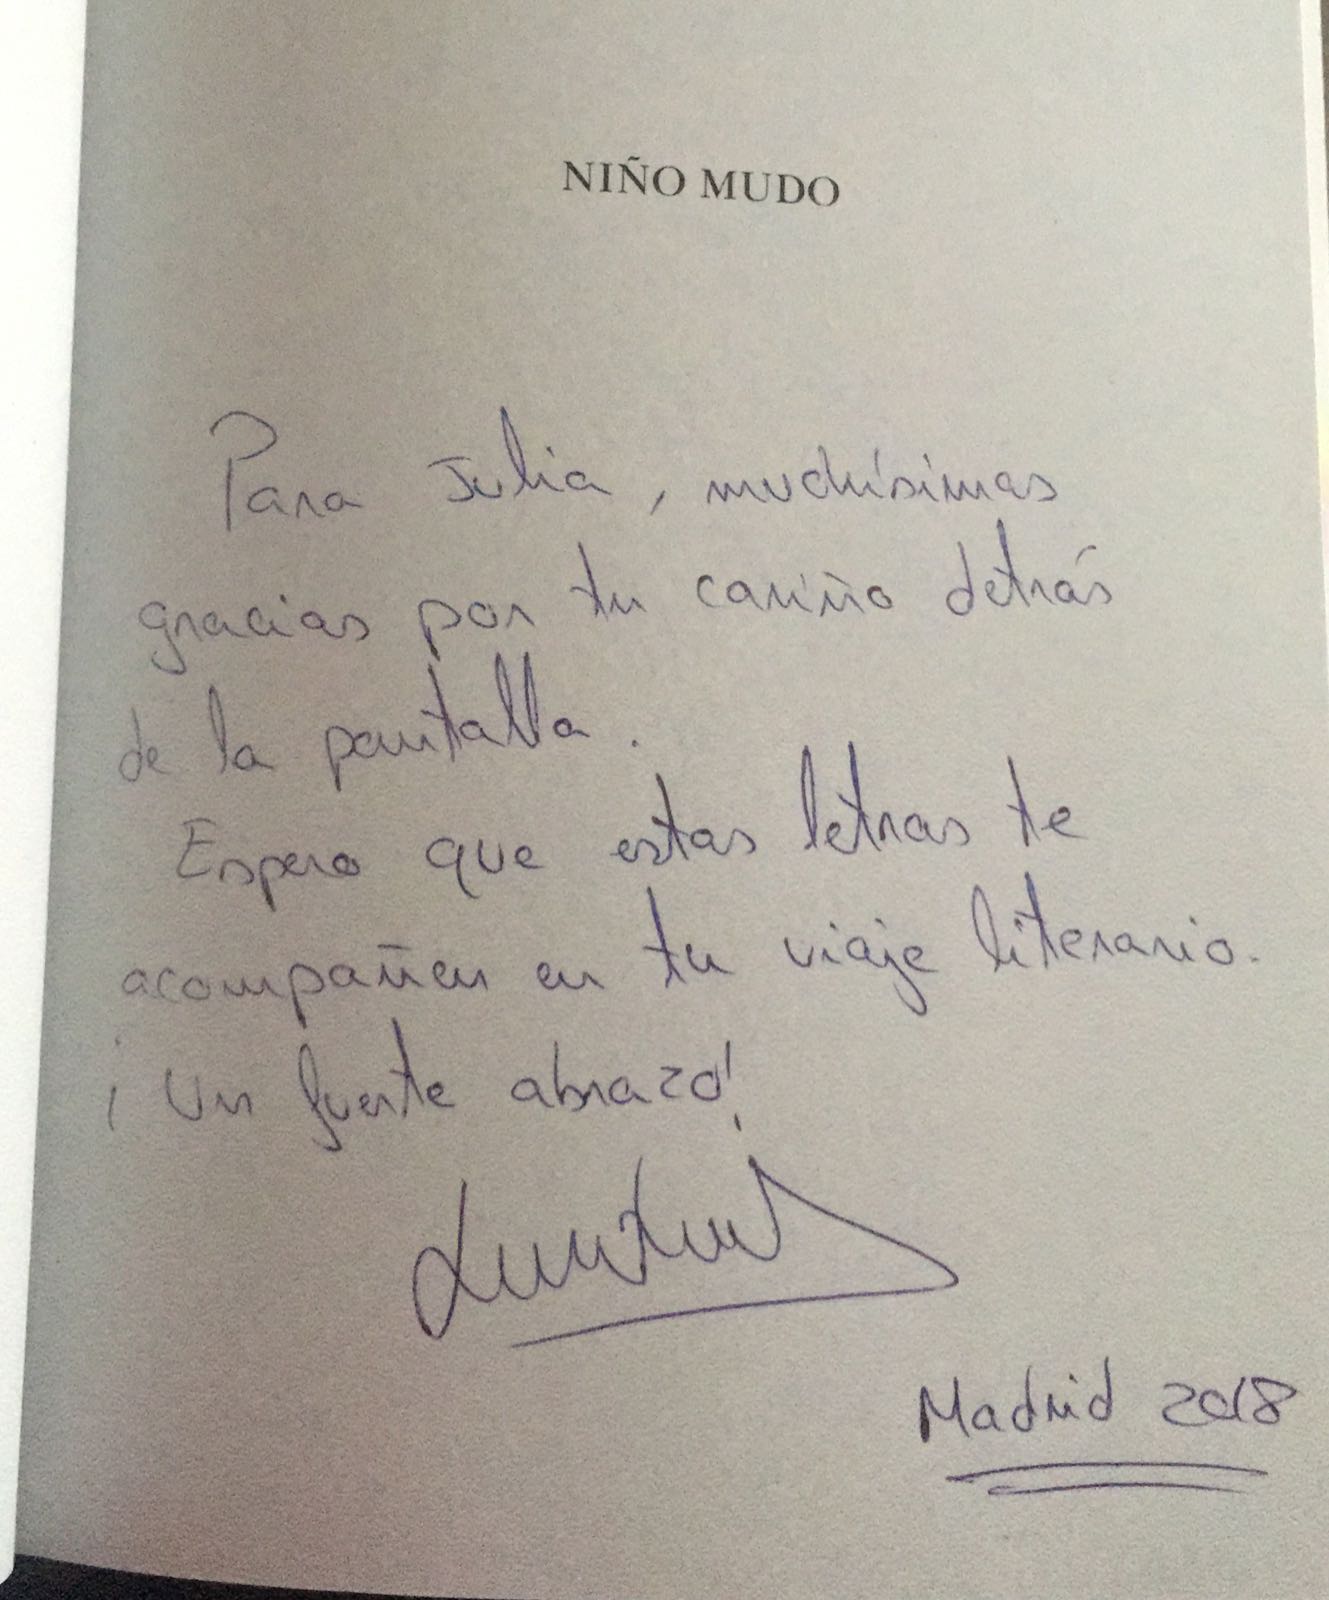 NIÑO MUDO
Para Julia, muchísimas
gracias por tu cariño detrás
de la pantalla.
Espero que estas letras te
acompañen en tu viaje literario.
¡Un fuerte abrazo!
Madrid 2018